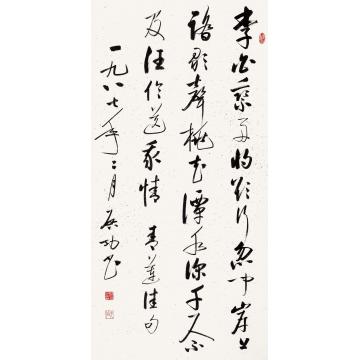 李白乘舟将欲行忽闻岸上
踏歌声桃花潭水深千尺不
及汪伦送我情 青莲佳句
一九八七年二月 启功书